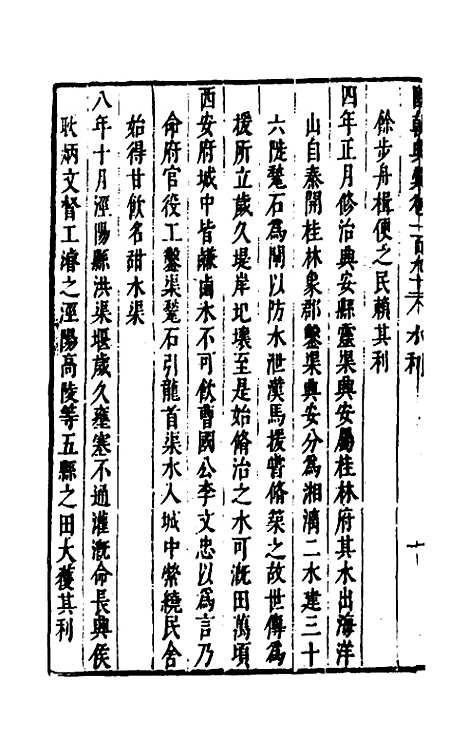 國朝典彙卷一百九十 水利 十
餘步舟楫便之民賴其利
四年正月修治興安縣靈渠興安屬桂林府其水出海洋
山自秦開桂林象郡鑿渠興安分為湘漓二水建三十
六陡甃石為閘以防水泄漢馬援嘗脩築之故世傳為
援所立歲久堤岸圮壞至是始脩治之水可溉田萬頃
西安府城中皆鹻鹵水不可飲曹國公李文忠以為言乃
命府官役工鑿渠甃石引龍首渠水入城中縈繞民舍
始得甘飲名甜水渠
八年十月涇陽縣洪渠堰歲久壅塞不通灌溉命長興侯
耿炳文督工濬之涇陽高陵等五縣之田大獲其利